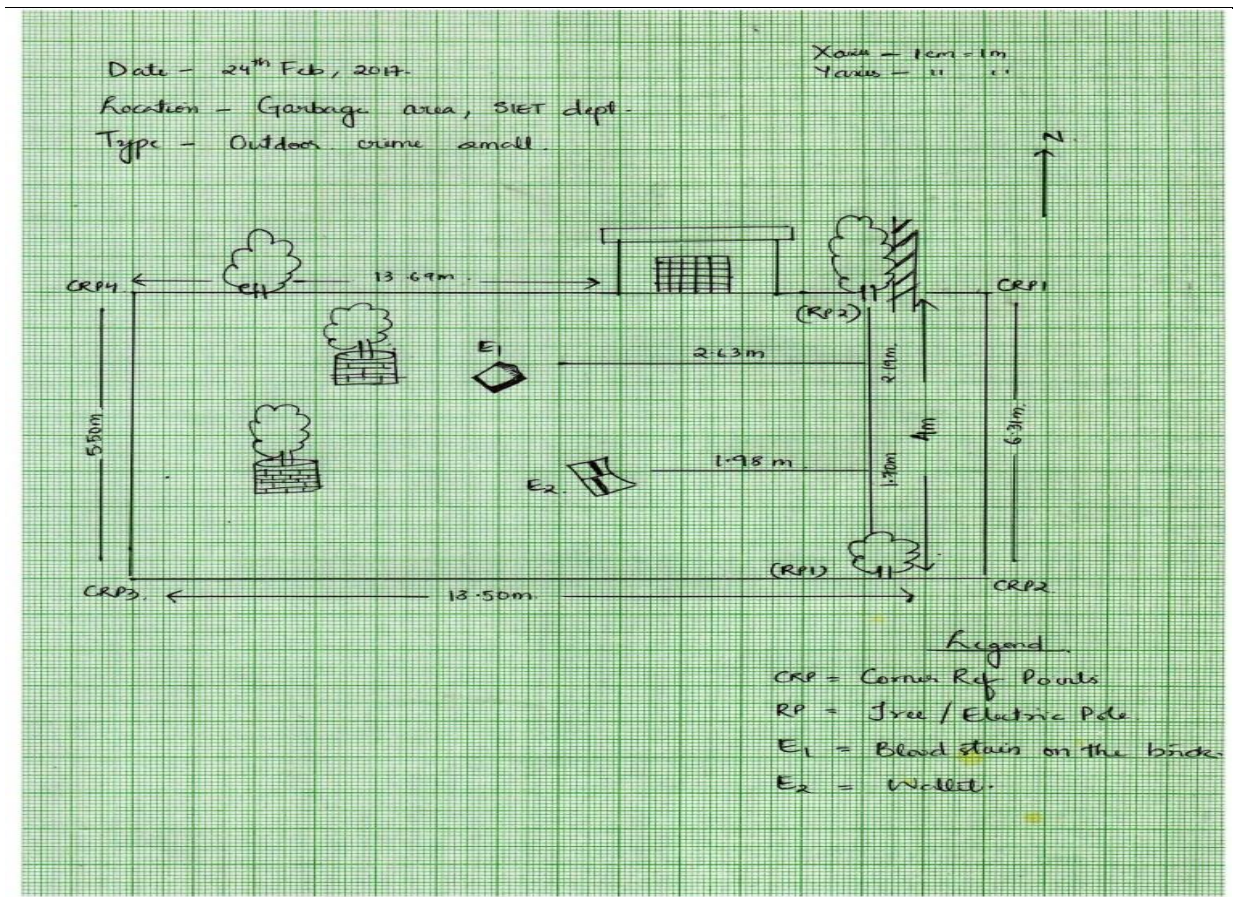 Date - 24th Feb, 2017.
Xaxis - 1cm = 1m
Yaxis - " "
Location - Garbage area, SIET dept.
Type - Outdoor crime small.
N
CRP4
13.69m
CRP1
(RP2)
E1
2.63m
2.19m.
5.50m
4m
6.31m.
E2.
1.98 m
1.70m
(RP1)
CRP3.
13.50m.
CRP2
Legend
CRP = Corner Ref Points
RP = Tree / Electric Pole.
E1 = Blood stain on the brick.
E2 = Wallet.